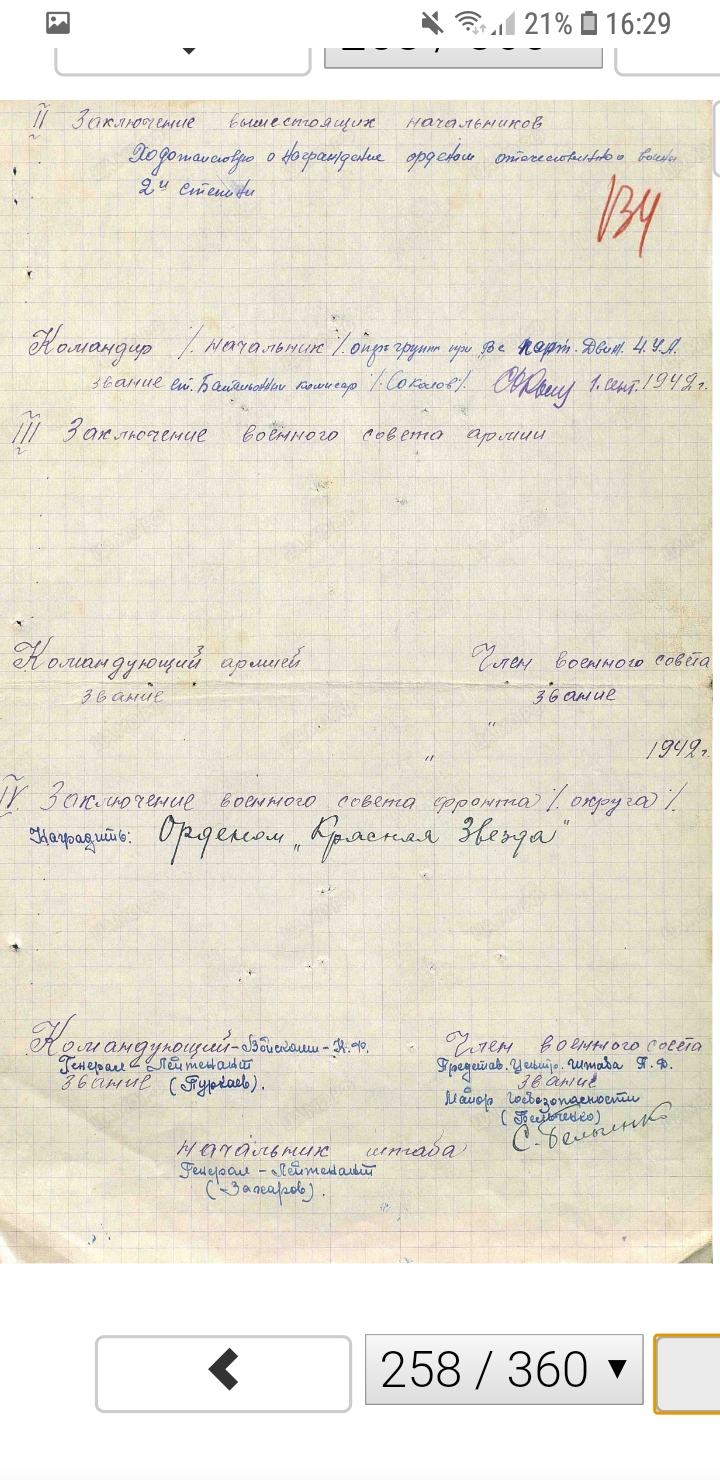 21% 16:29
II Заключение вышестоящих начальников
Ходотайствую о награждение орденом отечественной воины
2й степени
134
Командир /. начальник /. опер группы при Вс парт. Движ. 4.У.А.
звание ст. Батальонны комисар /. Соколов /. 1. сент. 1942 г.
III Заключение военного совета армии
Командующий армией Член военного совета
звание звание
" "
1942 г.
IV Заключение военного совета фронта /. округа /.
Наградить: Орденом „Красная Звезда"
Командующий - Войсками - К.Ф. Член военного совета
Генерал - Лейтенант Представ. Центр. Штаба П.Д.
звание (Пуркаев). звание
Майор Госбезопасности
(Бельченко)
С. Бельченко
Начальник штаба
Генерал - Лейтенант
(Захаров).
258 / 360